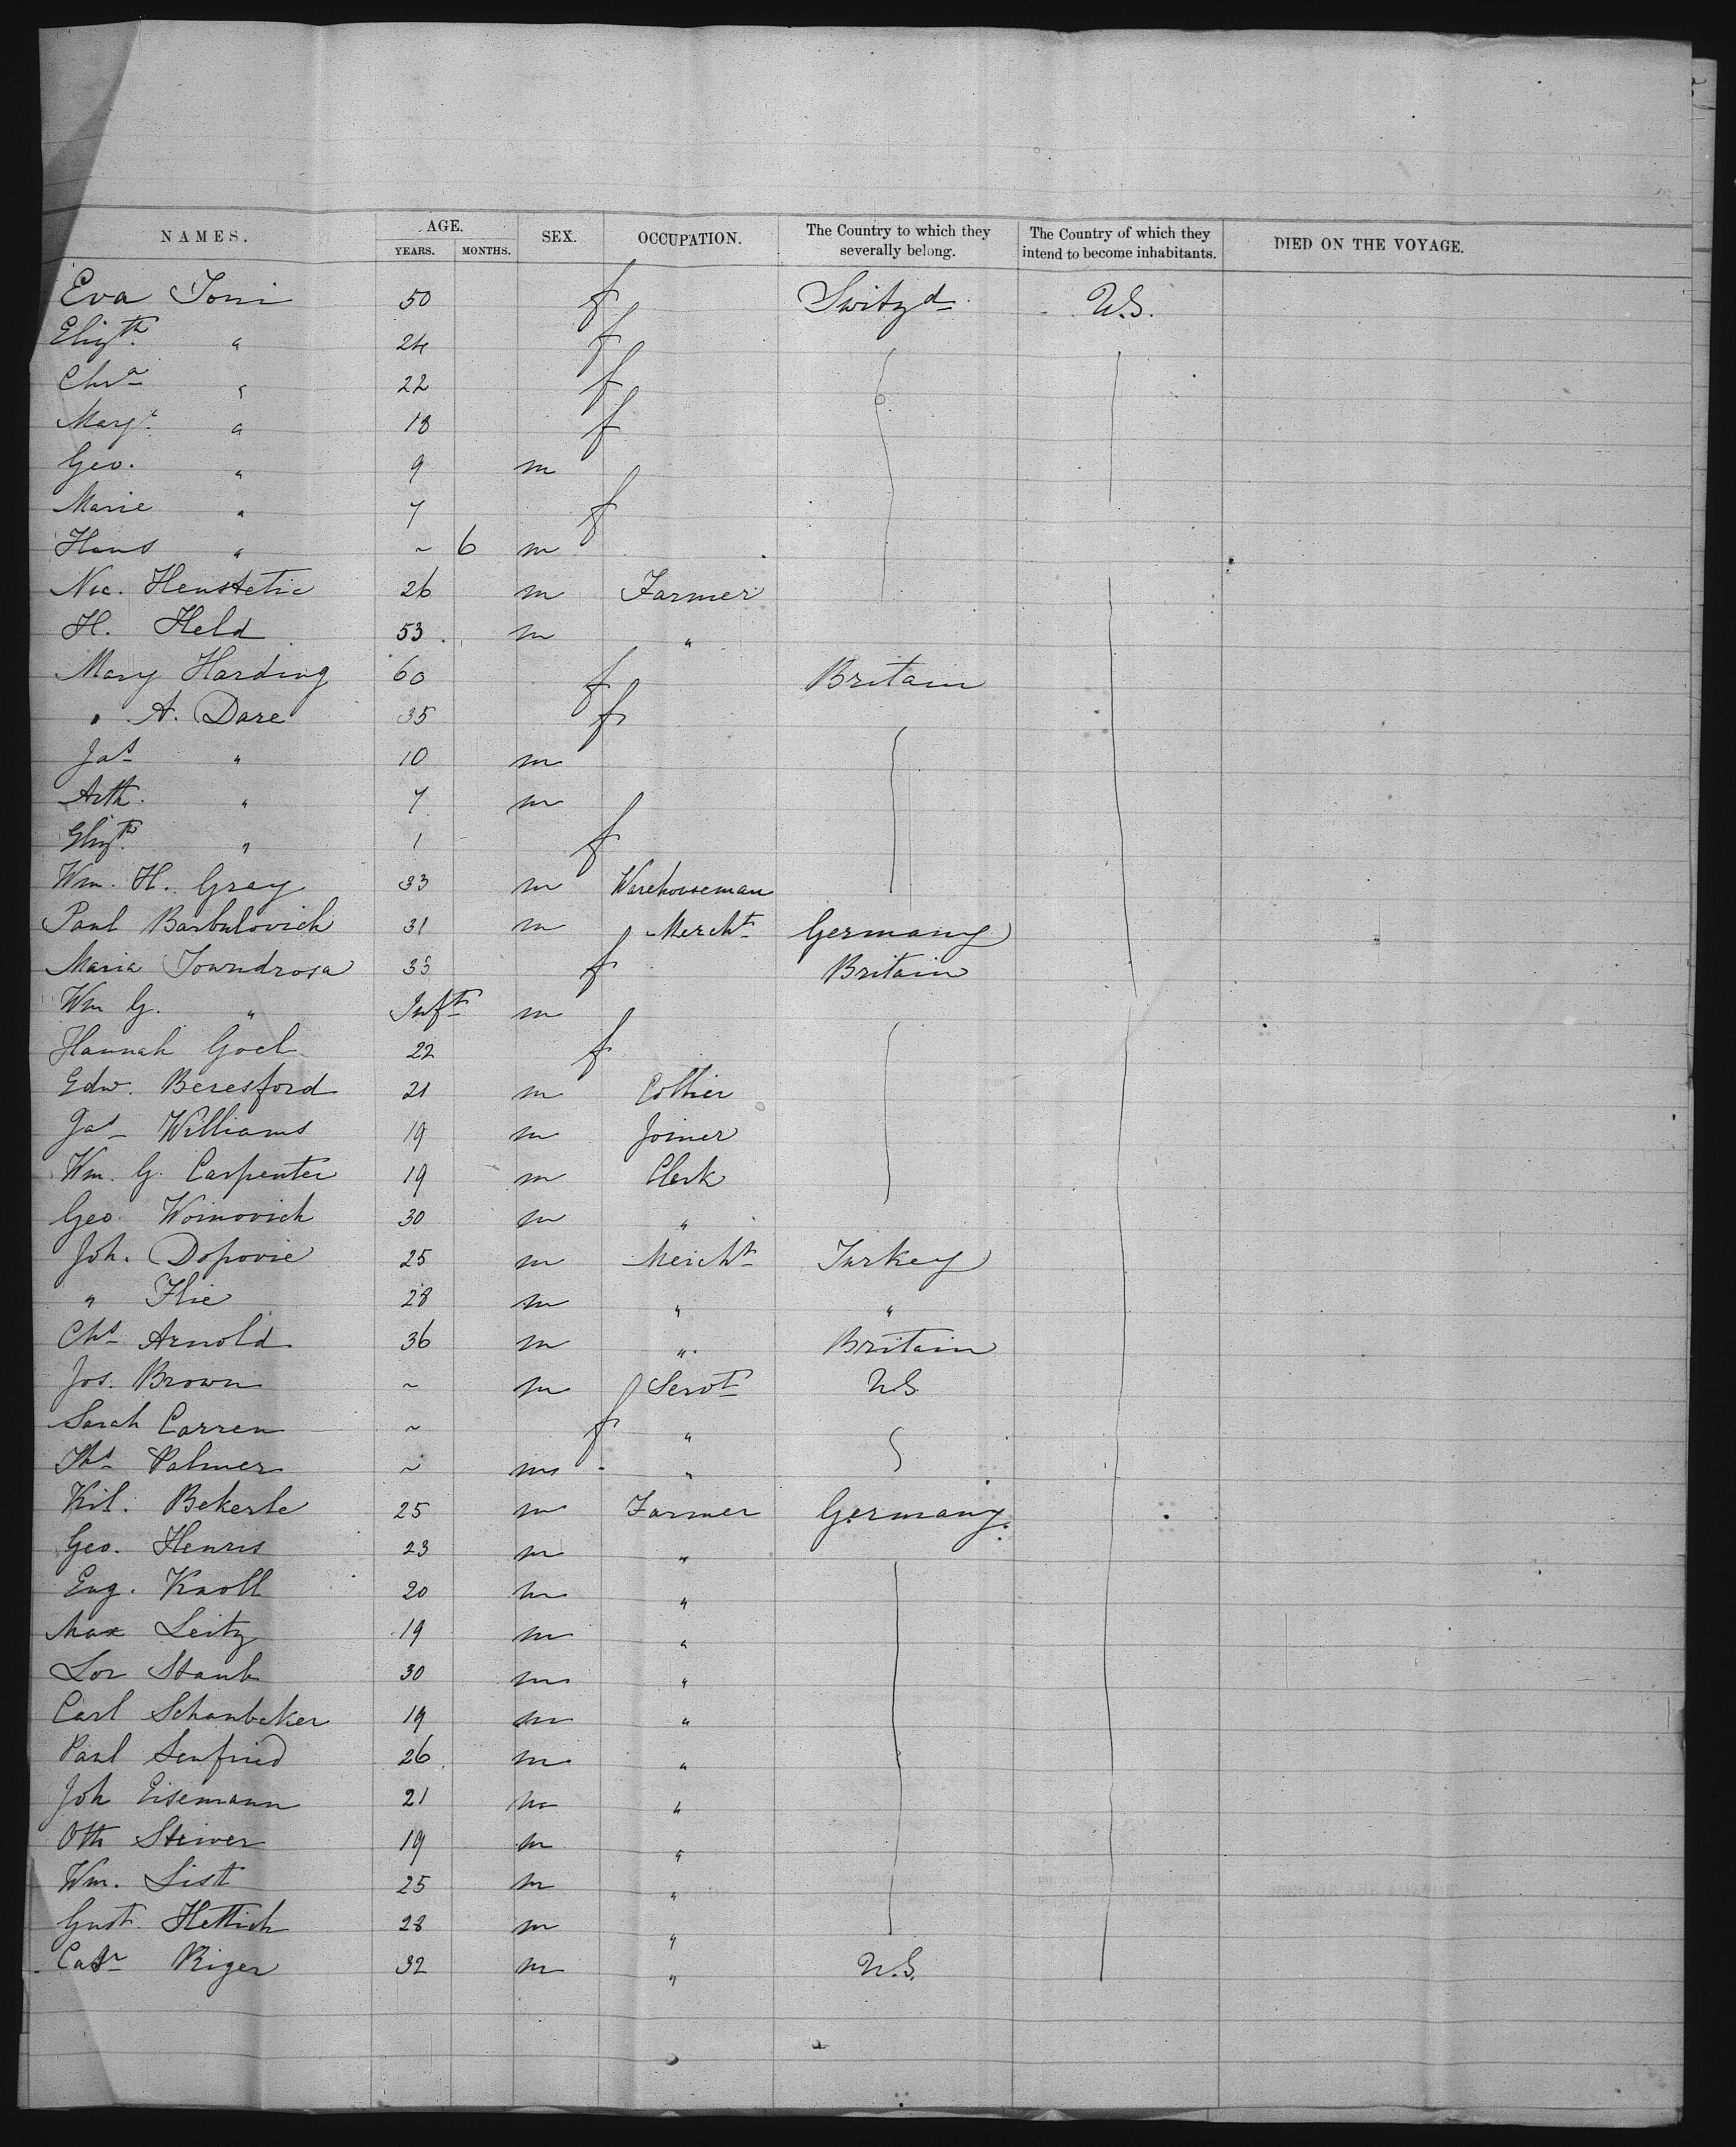 NAMES. AGE. YEARS. MONTHS. SEX. OCCUPATION. The Country to which they severally belong. The Country of which they intend to become inhabitants. DIED ON THE VOYAGE.
Eva Toni 50 f Switzd U.S.
Elizth " 24 f
Chra " 22 f
Margt " 18 f
Geo. " 9 m
Marie " 7 f
Hans " ~ 6 m
Nic. Henstetie 26 m Farmer
H. Held 53 m "
Mary Harding 60 f Britain
" A. Dare 35 f
Jas " 10 m
Arth. " 7 m
Elizth " 1 f
Wm. H. Gray 33 m Warehouseman
Paul Barbulovich 31 m Mercht Germany
Maria Towndrosa 33 f Britain
Wm G. " Inft m
Hannah Goel 22 f
Edw. Beresford 21 m Collier
Jas Williams 19 m Joiner
Wm. G. Carpenter 19 m Clerk
Geo. Woinovich 30 m "
Joh. Dopovie 25 m Mercht Turkey
" Ilie 28 m " "
Chs Arnold 36 m " Britain
Jos. Brown ~ m Servt U.S.
Sarah Carren ~ f "
Ths Palmer ~ m "
Kil. Bekerle 25 m Farmer Germany
Geo. Henris 23 m "
Eug. Knoll 20 m "
Max Leitz 19 m "
Lor Staub 30 m "
Carl Schanbeker 19 m "
Paul Senfried 26 m "
Joh Eisemann 21 m "
Oth Stiver 19 m "
Wm. List 25 m "
Gust. Hettich 28 m "
Casr Riger 32 m " U.S.